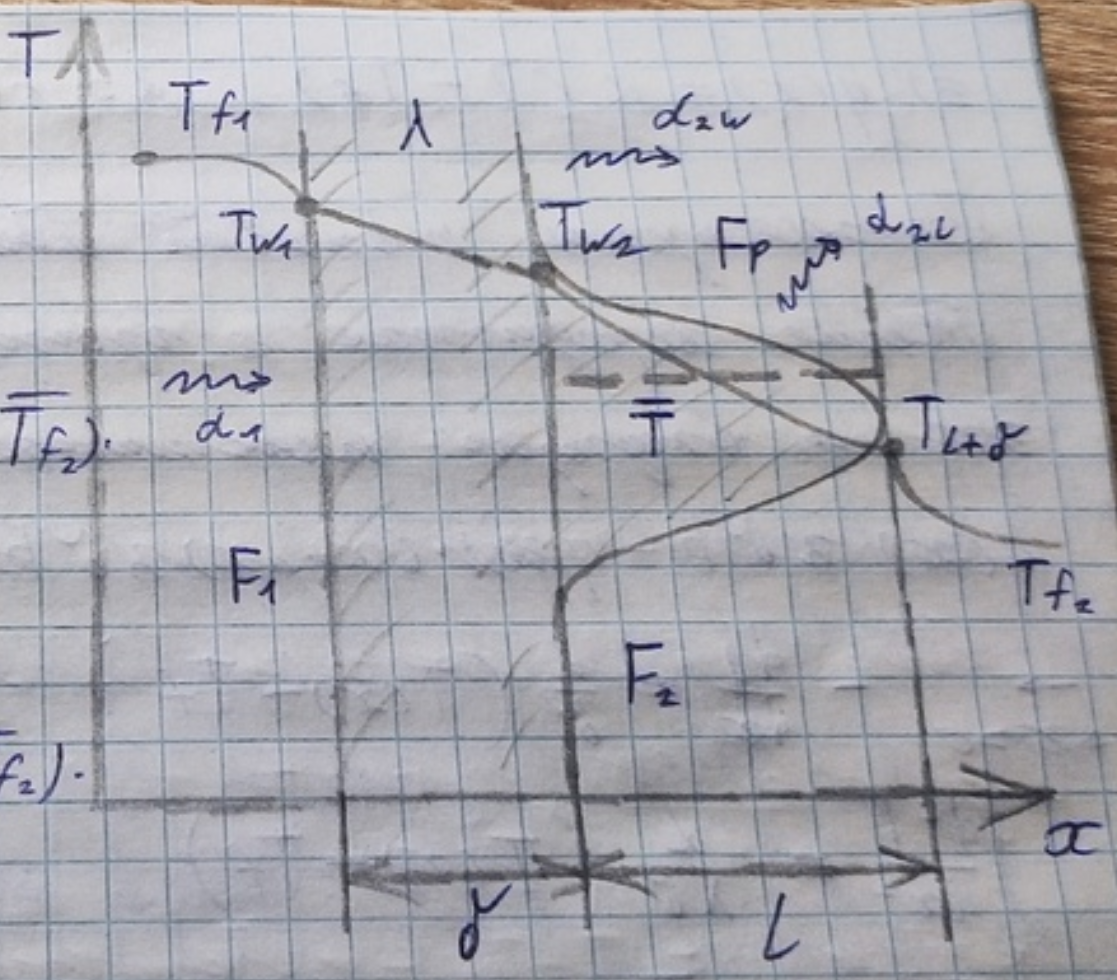 T
T_f1
λ
α_2w
T_w1
T_w2
F_p
α_2l
T̄_f2).
α_1
T̄
T_l+δ
F_1
T_f2
F_2
f_2).
x
δ
l